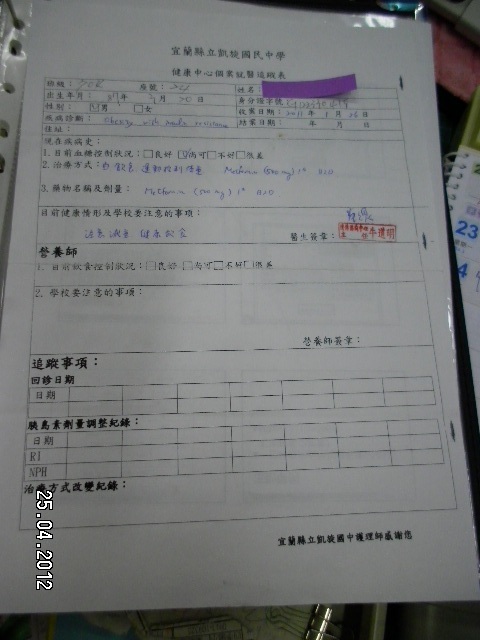 宜蘭縣立凱旋國民中學
健康中心個案就醫追蹤表
班級： 座號： 姓名：
出生年月： 年 月 日 身分證字號
性別： □男 □女 收案日期： 年 月 日
疾病診斷：Obesity with insulin resistance 結案日期： 年 月 日
住址：
現在疾病史：
1.目前血糖控制狀況：□良好 □尚可□不好□很差
2.治療方式： 飲食 運動控制體重 Metformin (500mg) 1# BID
3.藥物名稱及劑量： Metformin (500mg) 1# BID
目前健康情形及學校要注意的事項：
健康飲食 醫生簽章：
營養師
1.目前飲食控制狀況：□良好 □尚可□不好□很差
2.學校要注意的事項：
營養師簽章：
追蹤事項：
回診日期
日期
胰島素劑量調整紀錄：
日期
RI
NPH
治療方式改變紀錄：
宜蘭縣立凱旋國中護理師感謝您
25.04.2012
23
4